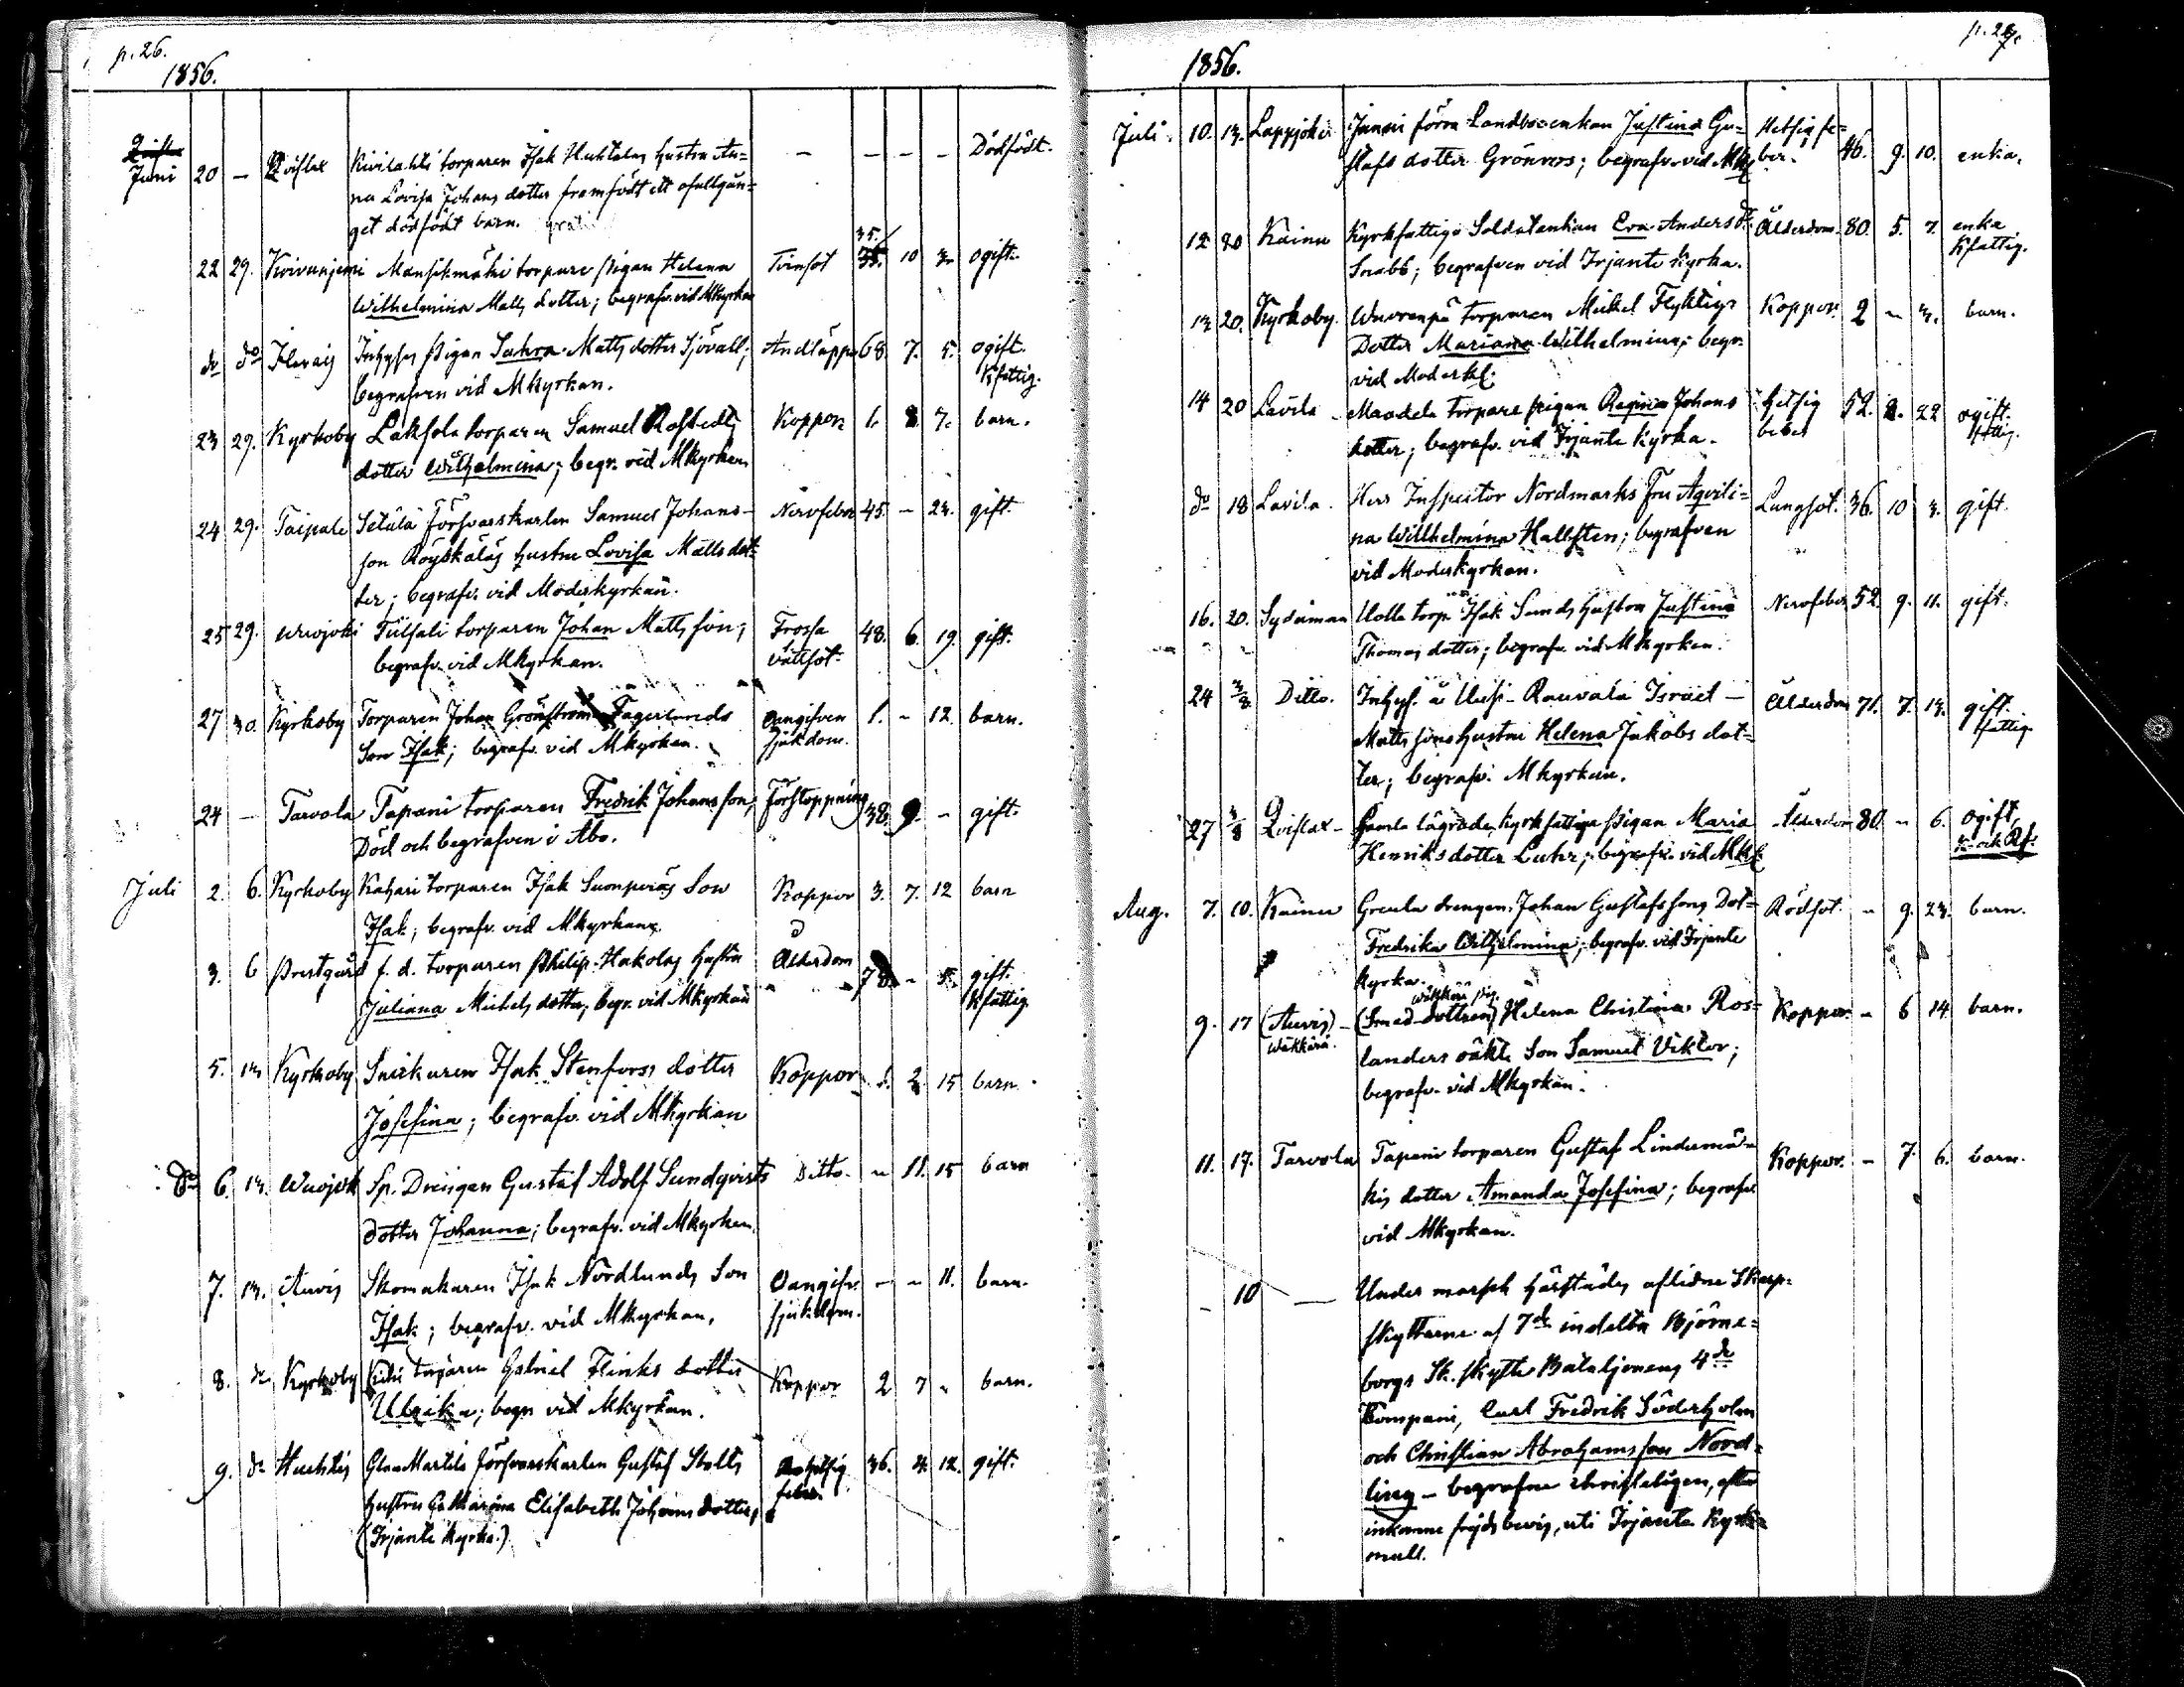 p. 26.
1856.
Juni 20 — Qviflax Kivilahti torparen Isak Huhtalas hustru An= — — — — Dödfödt.
na Lovisa Johans dotter framfödt ett ofullgån=
get dödfödt barn.
22 29. Kivunjemi Mansikmäki torpare pigan Helena Tvinsot 35. 10 3. ogift.
Wilhelmina Matts dotter; begrafv. vid Mkyrkan
do do Inhyses pigan Sahra Matts dotter Sjövall; Andtäppa 68. 7. 5. ogift.
begrafven vid Mkyrkan. Kfattig.
23 29. Kyrkoby Laksola torparen Samuel Rostedts Koppor 1. 8 7. barn.
dotter Wilhelmina; begr. vid Mkyrkan
24 29. Taipale Setälä Försvarskarlen Samuel Johans- Nervfeber 45. - 23. gift.
son Röyskäläs hustru Lovisa Matts dot=
ter; begrafv. vid Moderkyrkan.
25 29. torparen Johan Matts son; Frossa 48. 6. 19. gift.
begrafv. vid Mkyrkan. vattsot.
27 30. Kyrkoby Torparen Johan Grönström Fagerlunds Oangifven 1. - 12. barn.
Son Isak; begrafv. vid Mkyrkan. sjukdom.
24 — Tarvola Tapani torparen Fredrik Johansson; Förstoppning 38. 9. - gift.
Död och begrafven i Åbo.
Juli 2. 6. Kyrkoby Kahari torparen Isak Suonperäs Son Koppor 3. 7. 12 barn
Isak; begrafv. vid Mkyrkan.
3. 6 Prestgård f. d. torparen Philip Hakolas hustru Ålderdom 78. - 5. gift.
Juliana Michels dotter; begr. vid Mkyrkan Kfattig.
5. 13. Kyrkoby Snickaren Isak Stenfors dotter Koppor 1. 2 15 barn.
Josefina; begrafv. vid Mkyrkan
do 6. 13. Wuojoki Sp. Drängen Gustaf Adolf Sundqvists Ditto. - 11. 15 barn
dotter Johanna; begrafv. vid Mkyrkan.
7. 13. Auvis Skomakaren Isak Nordlunds Son Oangifv. - - 11. barn.
Isak; begrafv. vid Mkyrkan. sjukdom.
8. do Kyrkoby torparen Gabriel Flinks dotter Koppor 2 7 - barn.
Ulrika; begr. vid Mkyrkan.
9. do Huhtis Martila Försvarskarlen Gustaf Stolts Hetsig 36. 4. 12. gift.
hustru Catharina Elisabeth Johans dotter, feber.
(Irjante kyrka.)
1856.
Juli. 10. 13. Lappjoki Junni förra Landboenkan Justina Gu= Hetsig fe= 46. 9. 10. enka.
stafs dotter Grönroos; begrafv. vid Mk ber.
12 20 Kainu Kyrkfattiga Soldatenkan Eva Anders d. Ålderdom. 80. 5. 7. enka
Snabb; begrafven vid Irjante kyrka. Kfattig.
13 20. Kyrkoby. Wuorenpä torparen Mickel Flyktigs Koppor. 2 - 3. barn.
Dotter Mariana Wilhelmina; begr.
vid Moderk.
14 20 Lavila Mandela torpare pigan Regina Johans Hetsig 52. 2. 22 ogift.
dotter; begrafv. vid Irjante kyrka. feber
do 18 Lavila. Herr Inspector Nordmarks Fru Aqvili= Lungsot. 36. 10 3. gift.
na Willhelmina Hallsten; begrafven
vid Moderkyrkan.
16. 20. Sydänmaa Uolla torp. Isak Sunds hustru Justina Nervfeber 52. 9. 11. gift.
Thomas dotter; begrafv. vid Mkyrkan.
24 3/8 Ditto. Inhys. å Uusi-Rauvala Israel Ålderdom 71. 7. 13. gift.
Matts sons hustru Helena Jakobs dot= fattig.
ter; begrafv. Mkyrkan.
27 3/8 Qviflax - Gamla kyrkfattiga pigan Maria Ålderdom 80. - 6. ogift,
Henriks dotter Luhr; begrafv. vid Mk.
Aug. 7. 10. Kainu Greula drengen Johan Gustafssons Dot= Rödsot. - 9. 23. barn.
Fredrika Wilhelmina; begrafv. vid Irjante
kyrka.
wäkkäri pig.
9. 17 (Auvis) - (Smed-dottren) Helena Christina Ros= Koppor. - 6 14 barn.
Wäkkärä.
landers oäkta Son Samuel Viktor;
begrafv. vid Mkyrkan.
11. 17. Tarvola Tapani torparen Gustaf Lindumä= Koppor. - 7. 6. barn.
kis dotter Amanda Josefina; begrafv
vid Mkyrkan.
- 10 — Under marsch härstädes aflidne Skarp=
skyttarne af 7de indelta Björne=
borgs Sk. skytte Bataljonens 4de
Kompani, Carl Fredrik Söderholm
och Christian Abrahamsson Nord=
ling - begrafne christeligen, efter
inkomne frejds bevis, uti Irjante Kyrko
mull.